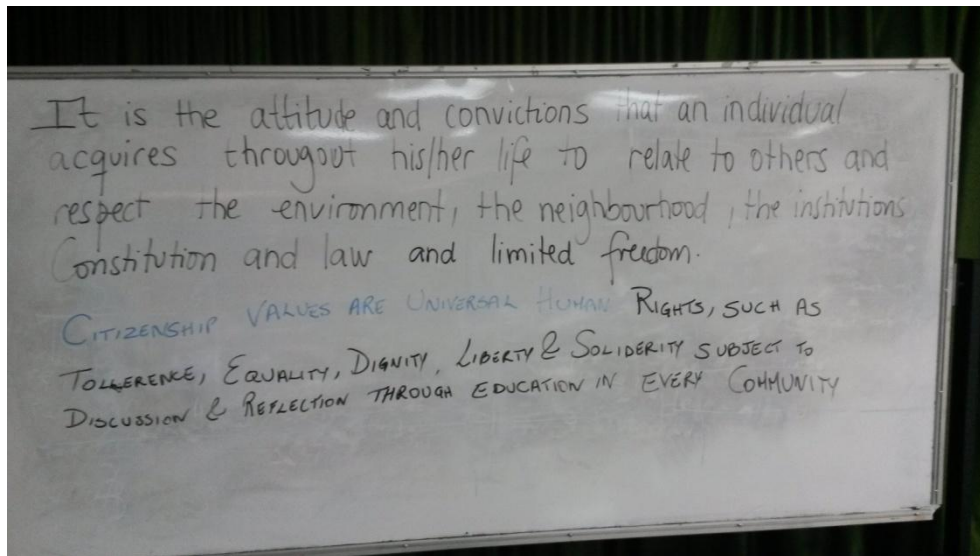 It is the attitude and convictions that an individual
acquires througout his/her life to relate to others and
respect the environment, the neighbourhood, the institutions
Constitution and law and limited freedom.
CITIZENSHIP VALUES ARE UNIVERSAL HUMAN RIGHTS, SUCH AS
TOLLERENCE, EQUALITY, DIGNITY, LIBERTY & SOLIDERITY SUBJECT TO
DISCUSSION & REFLECTION THROUGH EDUCATION IN EVERY COMMUNITY